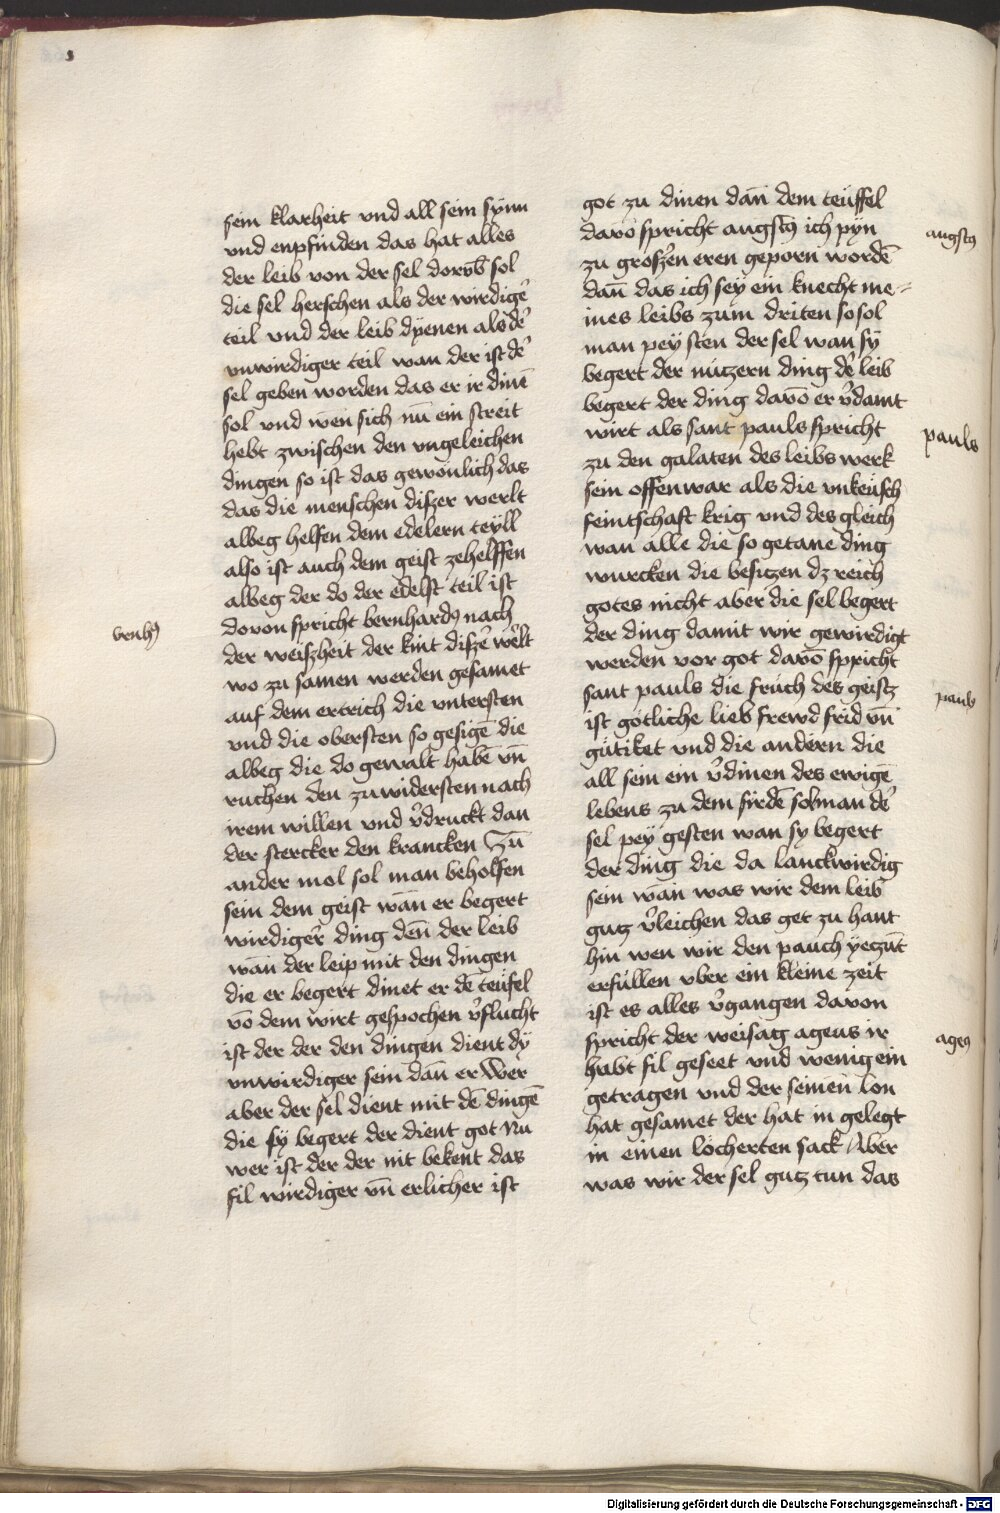 sein klarheit vnd all sein synn
vnd enpfinden das hat alles
der leib von der sel dorvb̄ sol
die sel herschen als der wirdigē
teil vnd der leib dyenen als d̄e
vnwirdiger teil wan der ist d̄e
sel geben worden das er ir dinē
sol vnd wen sich nu ein streit
hebt zwischen den vngeleichen
dingen so ist das gewonlich das
das die menschen diszer werlt
albeg helfen dem edelern teyll
also ist auch dem geist zehelffen
albeg der do der edelst teil ist
bernhꝰ
dovon spricht bernhardꝰ nach
der weiszheit der kint diszē welt
wo zu samen werden gesamet
auf dem ertrich die vntersten
vnd die obersten so gesigē die
albeg die do gewalt habē vn̄
ruchen den zu widersten nach
irem willen vnd v̄druckt dan
der stercker den krancken Zū
ander mol sol man beholfen
sein dem geist wān er begert
wirdiger ding den̄ der leib
wān der leip mit den dingen
die er begert dinet er dē teufel
vō dem wirt gespochen v̄flucht
ist der der den dingen dient dy
vnwirdiger sein dān er Wer
aber der sel dient mit dē dingē
die sy begert der dient got Nu
wer ist der der nit bekent das
fil wirdiger vn̄ erlicher ist
got zu dinen dan̄ dem teuffel
davō spricht augstꝰ ich pyn
augstꝰ
zu groszen eren geporn wordē
dan̄ das ich sey ein knecht me-
ines leibs zum driten so sol
man pey sten der sel wan sy
begert der nutzern ding dē leib
begert der ding davō er v̄damt
wirt als sant pauls spricht
pauls
zu den galaten des leibs werk
sein offenwar als die vnkeusch
feintschaft krig vnd des gleich
wan alle die so getane ding
wurcken die besitzen dz reich
gotes nicht aber die sel begert
der ding damit wir gewirdigt
werden vor got davō sppricht
sant pauls die fruch des geistz
pauls
ist gotliche lieb frewd frid vn̄
gutiket vnd die andern die
all sein ein v̄dinen des ewigē
lebens zu dem firdē sol man dē
sel pey gesten wan sy begert
der ding die da lanckwirdig
sein wān was wir dem leib
gutz v̄leichen das get zu hant
hin wen wir den pauch yetzūt
erfullen vber ein kleine zeit
ist es alles v̄gangen davon
spricht der weisag ageus ir
ageꝰ
habt fil geseet vnd wenig ein
getragen vnd der seinen lon
hat gesamet der hat in gelegt
in einen locherten sack Aber
was wir der sel gutz tun das
Digitalisierung gefördert durch die Deutsche Forschungsgemeinschaft - DFG